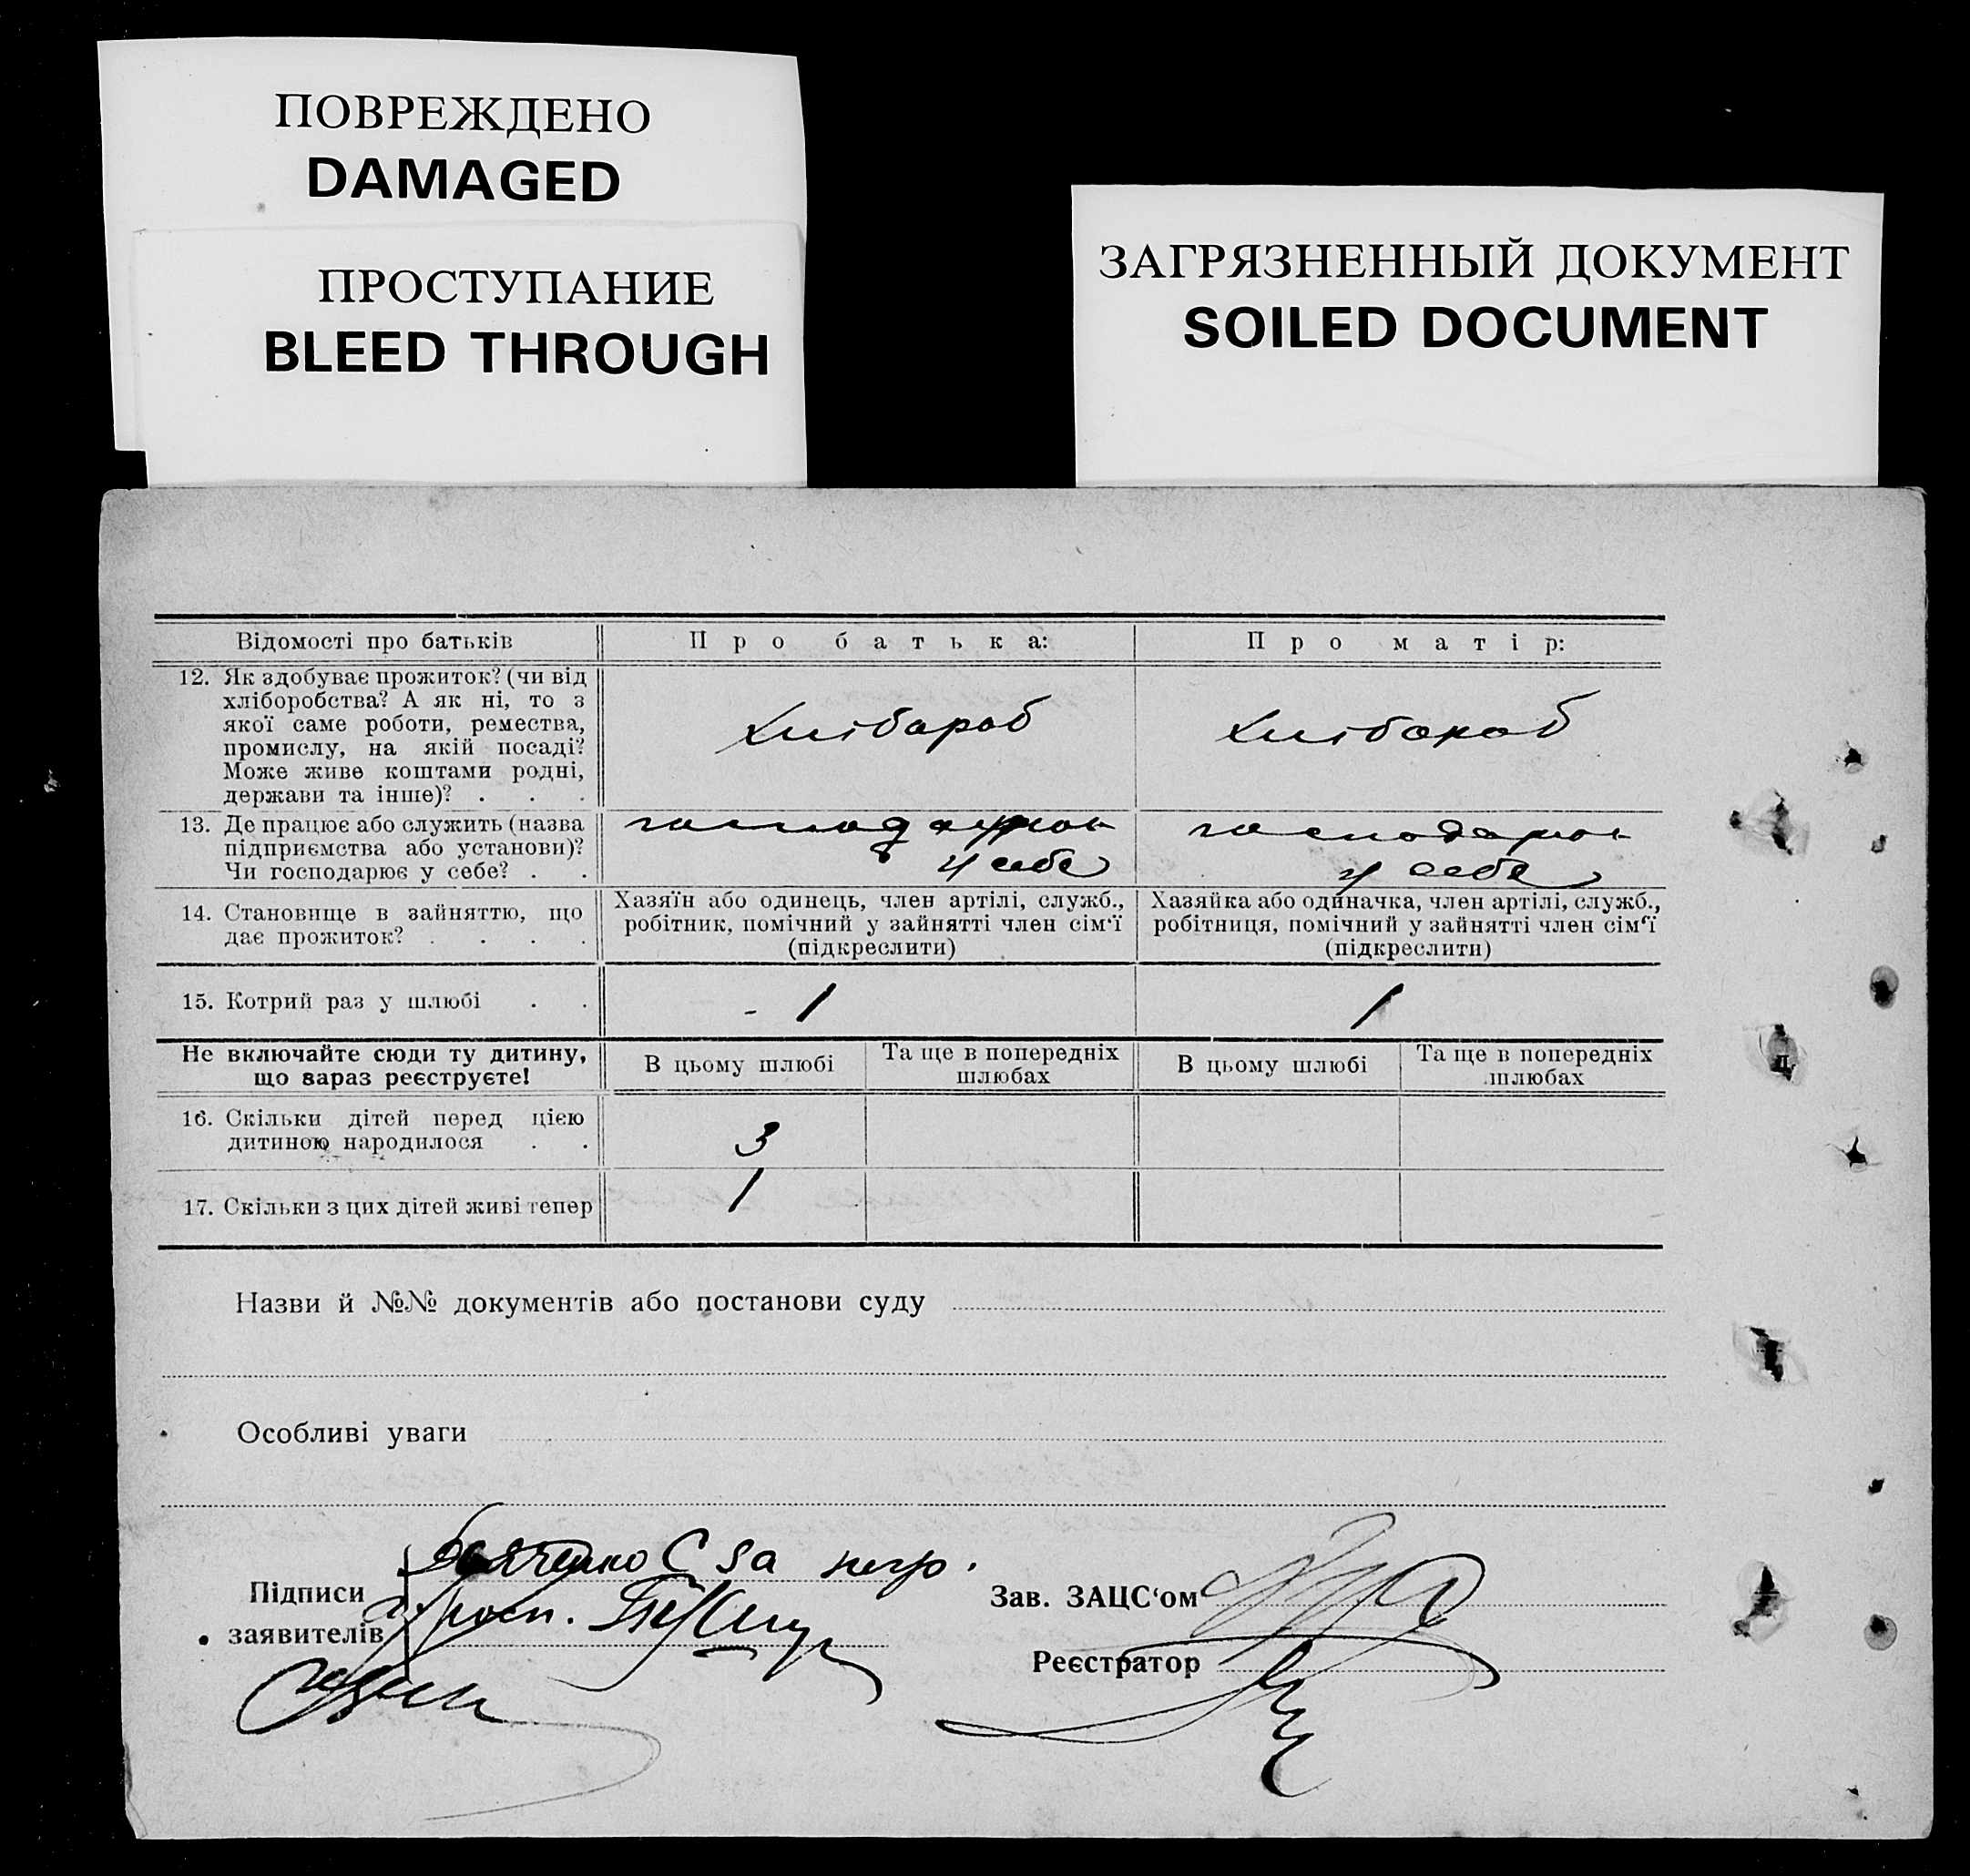 ПОВРЕЖДЕНО
DAMAGED
ПРОСТУПАНИЕ
BLEED THROUGH
ЗАГРЯЗНЕННЫЙ ДОКУМЕНТ
SOILED DOCUMENT
Відомості про батьків
Про батька:
Про матір:
12. Як здобуває прожиток? (чи від
хліборобства? А як ні, то з
якої саме роботи, ремества,
промислу, на якій посаді?
Може живе коштами родні,
держави та інше)? . . .
Хлібароб
Хлібароб
13. Де працює або служить (назва
підприємства або установи)?
Чи господарює у себе? . .
господарює
у себе
господарює
у себе
14. Становище в зайняттю, що
дає прожиток? . . . .
Хазяїн або одинець, член артілі, служб.,
робітник, помічний у зайнятті член сім'ї
(підкреслити)
Хазяйка або одиначка, член артілі, служб.,
робітниця, помічний у зайнятті член сім'ї
(підкреслити)
15. Котрий раз у шлюбі . .
- 1
1
Не включайте сюди ту дитину,
що зараз реєструєте!
В цьому шлюбі
Та ще в попередніх
шлюбах
В цьому шлюбі
Та ще в попередніх
шлюбах
16. Скільки дітей перед цією
дитиною народилося . .
3
17. Скільки з цих дітей живі тепер
1
Назви й №№ документів або постанови суду
Особливі уваги
Підписи
заявителів
С за негр.
Зав. ЗАЦС'ом
Реєстратор